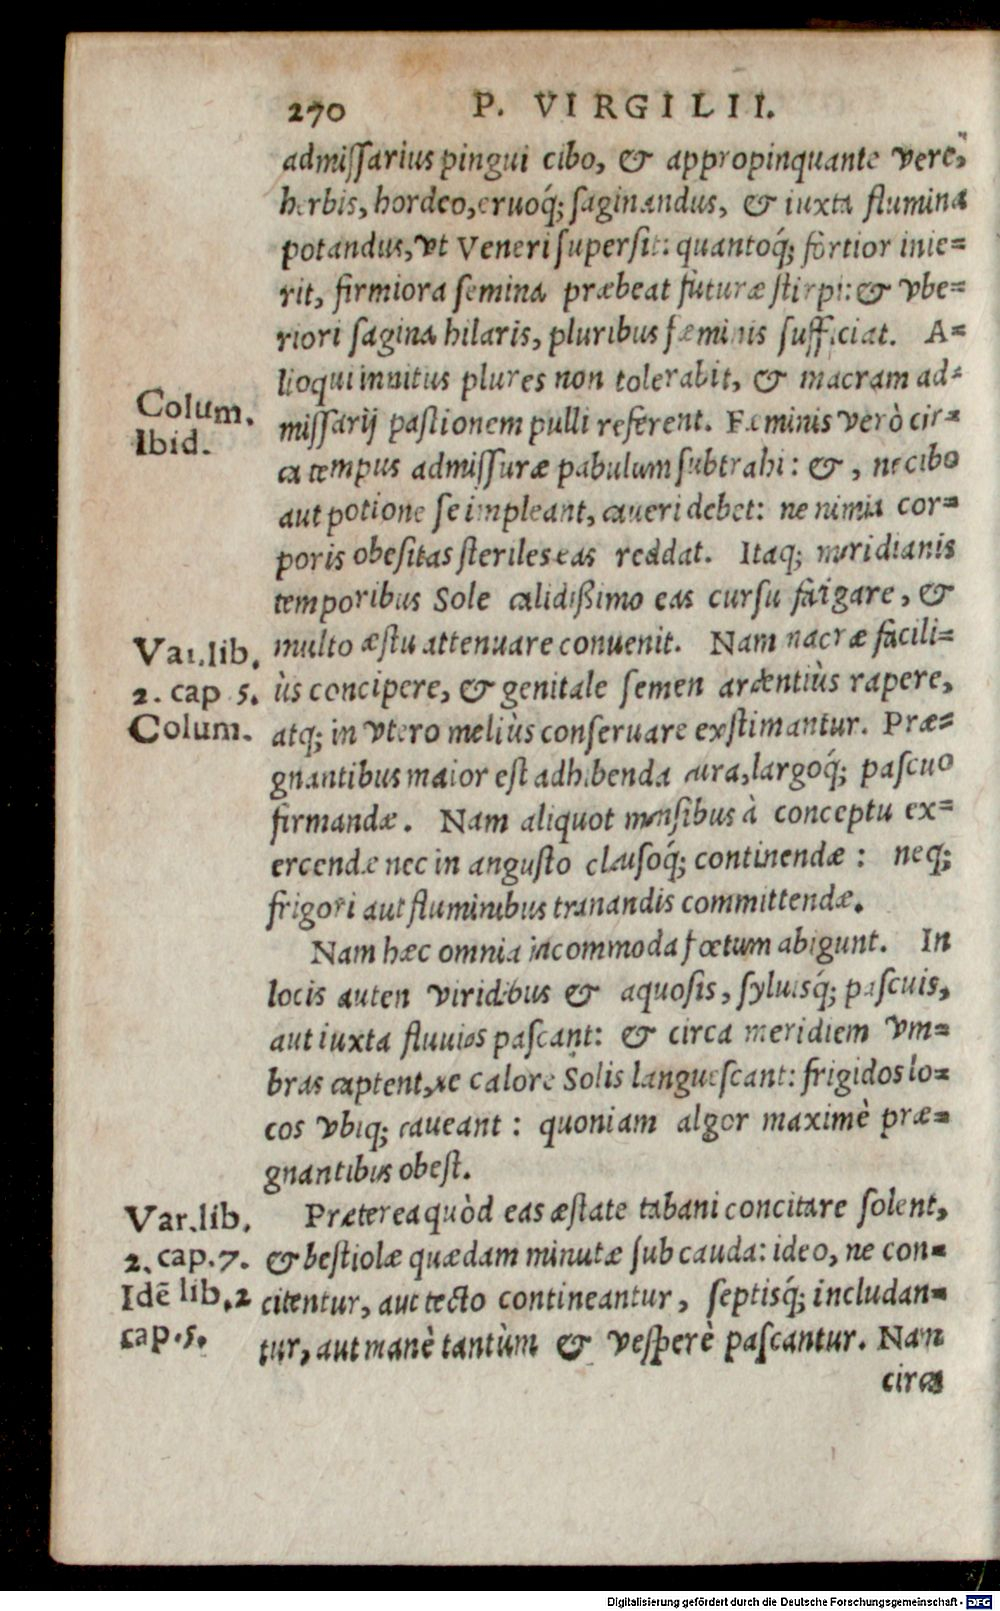 270 P. VIRGILII.
admiſſarius pingui cibo, & appropinquante vere,
herbis, hordeo, eruoq́; ſaginandus, & iuxta flumina
potandus, vt Veneri ſuperſit: quantoq́; fortior inie=
rit, firmiora ſemina præbeat futuræ ſtirpi: & vbe=
riori ſagina hilaris, pluribus fæminis ſufficiat. A=
lioqui inuitus plures non tolerabit, & macram ad=
Colum.
Ibid.
miſſarij paſtionem pulli referent. Fæminis verò cir=
ca tempus admiſſuræ pabulum ſubtrahi: &, ne cibo
aut potione ſe impleant, caueri debet: ne nimia cor=
poris obeſitas ſteriles eas reddat. Itaq; meridianis
temporibus Sole calidißimo eas curſu fatigare, &
Var. lib.
2. cap 5.
Colum.
multo æſtu attenuare conuenit. Nam macræ facili=
ùs concipere, & genitale ſemen ardentiùs rapere,
atq; in vtero meliùs conſeruare exſtimantur. Præ=
gnantibus maior eſt adhibenda cura, largoq́; paſcuo
firmandæ. Nam aliquot menſibus à conceptu ex=
ercendæ nec in anguſto clauſoq́; continendæ: neq;
frigori aut fluminibus tranandis committendæ.
Nam hæc omnia incommoda fœtum abigunt. In
locis autem viridibus & aquoſis, ſyluisq́; paſcuis,
aut iuxta fluuios paſcant: & circa meridiem vm=
bras captent, ne calore Solis langueſcant: frigidos lo=
cos vbiq; caueant: quoniam algor maximè præ=
gnantibus obeſt.
Var. lib.
2. cap. 7.
Idē lib. 2
cap. 5.
Præterea quòd eas æſtate tabani concitare ſolent,
& beſtiolæ quædam minutæ ſub cauda: ideo, ne con=
citentur, aut tecto contineantur, ſeptisq́; includan=
tur, aut manè tantùm & veſperè paſcantur. Nam
circa
Digitalisierung gefördert durch die Deutsche Forschungsgemeinschaft - DFG